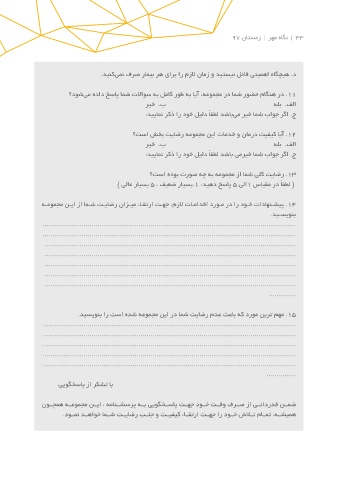 ۳۳ | نگاه مهر | زمستان ۹۷
د. هیچگاه اهمیتی قائل نیستید و زمان لازم را برای هر بیمار صرف نمی‌کنید.
۱۱. در هنگام حضور شما در مجموعه، آیا به طور کامل به سوالات شما پاسخ داده می‌شود؟
الف. بله ب. خیر
ج. اگر جواب شما خیر می‌باشد لطفاً دلیل خود را ذکر نمایید:
۱۲. آیا کیفیت درمان و خدمات این مجموعه رضایت بخش است؟
الف. بله ب. خیر
ج. اگر جواب شما خیرمی باشد لطفاً دلیل خود را ذکر نمایید:
۱۳. رضایت کلی شما از مجموعه به چه صورت بوده است؟
( لطفاً در مقیاس ۱ الی ۵ پاسخ دهید، ۱.بسیار ضعیف ، ۵ بسیار عالی )
۱۴. پیشنهادات خود را در مورد اقدامات لازم، جهت ارتقاء میزان رضایت شما از این مجموعه
بنویسید.
۱۵. مهم ترین مورد که باعث عدم رضایت شما در این مجموعه شده است را بنویسید.
با تشکر از پاسخگویی
ضمن قدردانی از صرف وقت خود جهت پاسخگویی به پرسشنامه ، این مجموعه همچون
همیشه، تمام تلاش خود را جهت ارتقاء کیفیت و جلب رضایت شما خواهد نمود.